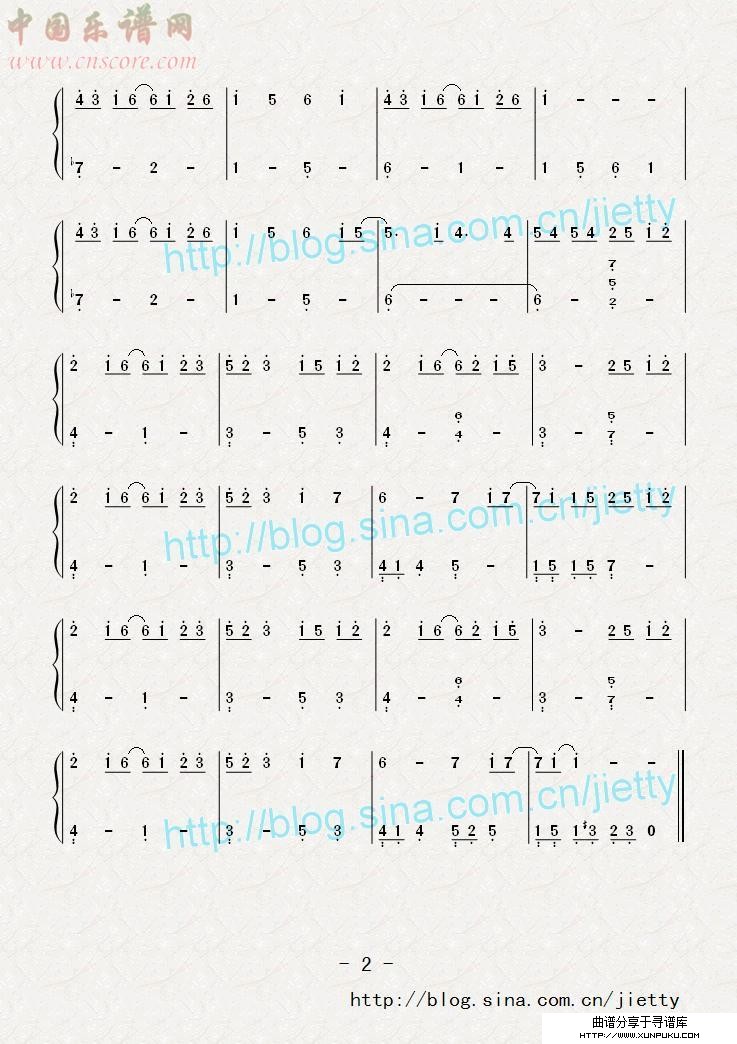 中国乐谱网
www.cnscore.com
4 3 1 6 6 1 2 6 | 1 5 6 1 | 4 3 1 6 6 1 2 6 | 1 - - -
♭7 - 2 - | 1 - 5 - | 6 - 1 - | 1 5 6 1
4 3 1 6 6 1 2 6 | 1 5 6 1 5 | 5. 1 4. 4 | 5 4 5 4 2 5 1 2
http://blog.sina.com.cn/jietty
7
5
♭7 - 2 - | 1 - 5 - | 6 - - - | 6 - 2 -
2 1 6 6 1 2 3 | 5 2 3 1 5 1 2 | 2 1 6 6 2 1 5 | 3 - 2 5 1 2
6 5
4 - 1 - | 3 - 5 3 | 4 - 4 - | 3 - 7 -
2 1 6 6 1 2 3 | 5 2 3 1 7 | 6 - 7 1 7 | 7 1 1 5 2 5 1 2
http://blog.sina.com.cn/jietty
4 - 1 - | 3 - 5 3 | 4 1 4 5 - | 1 5 1 5 7 -
2 1 6 6 1 2 3 | 5 2 3 1 5 1 2 | 2 1 6 6 2 1 5 | 3 - 2 5 1 2
6 5
4 - 1 - | 3 - 5 3 | 4 - 4 - | 3 - 7 -
2 1 6 6 1 2 3 | 5 2 3 1 7 | 6 - 7 1 7 | 7 1 1 - -
http://blog.sina.com.cn/jietty
4 - 1 - | 3 - 5 3 | 4 1 4 5 2 5 | 1 5 1 #3 2 3 0
- 2 -
http://blog.sina.com.cn/jietty
曲谱分享于寻谱库
HTTP://WWW.XUNPUKU.COM